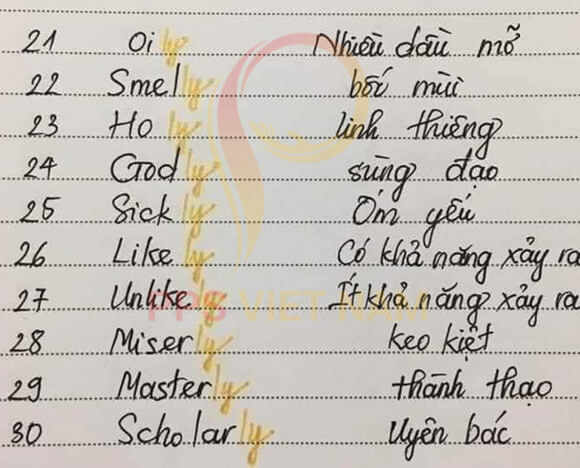 21 Oily Nhiều dầu mỡ
22 Smelly bốc mùi
23 Holy linh thiêng
24 Godly sùng đạo
25 Sickly Ốm yếu
26 Likely Có khả năng xảy ra
27 Unlikely Ít khả năng xảy ra
PPS VIET NAM
28 Miserly keo kiệt
29 Masterly thành thạo
30 Scholarly Uyên bác